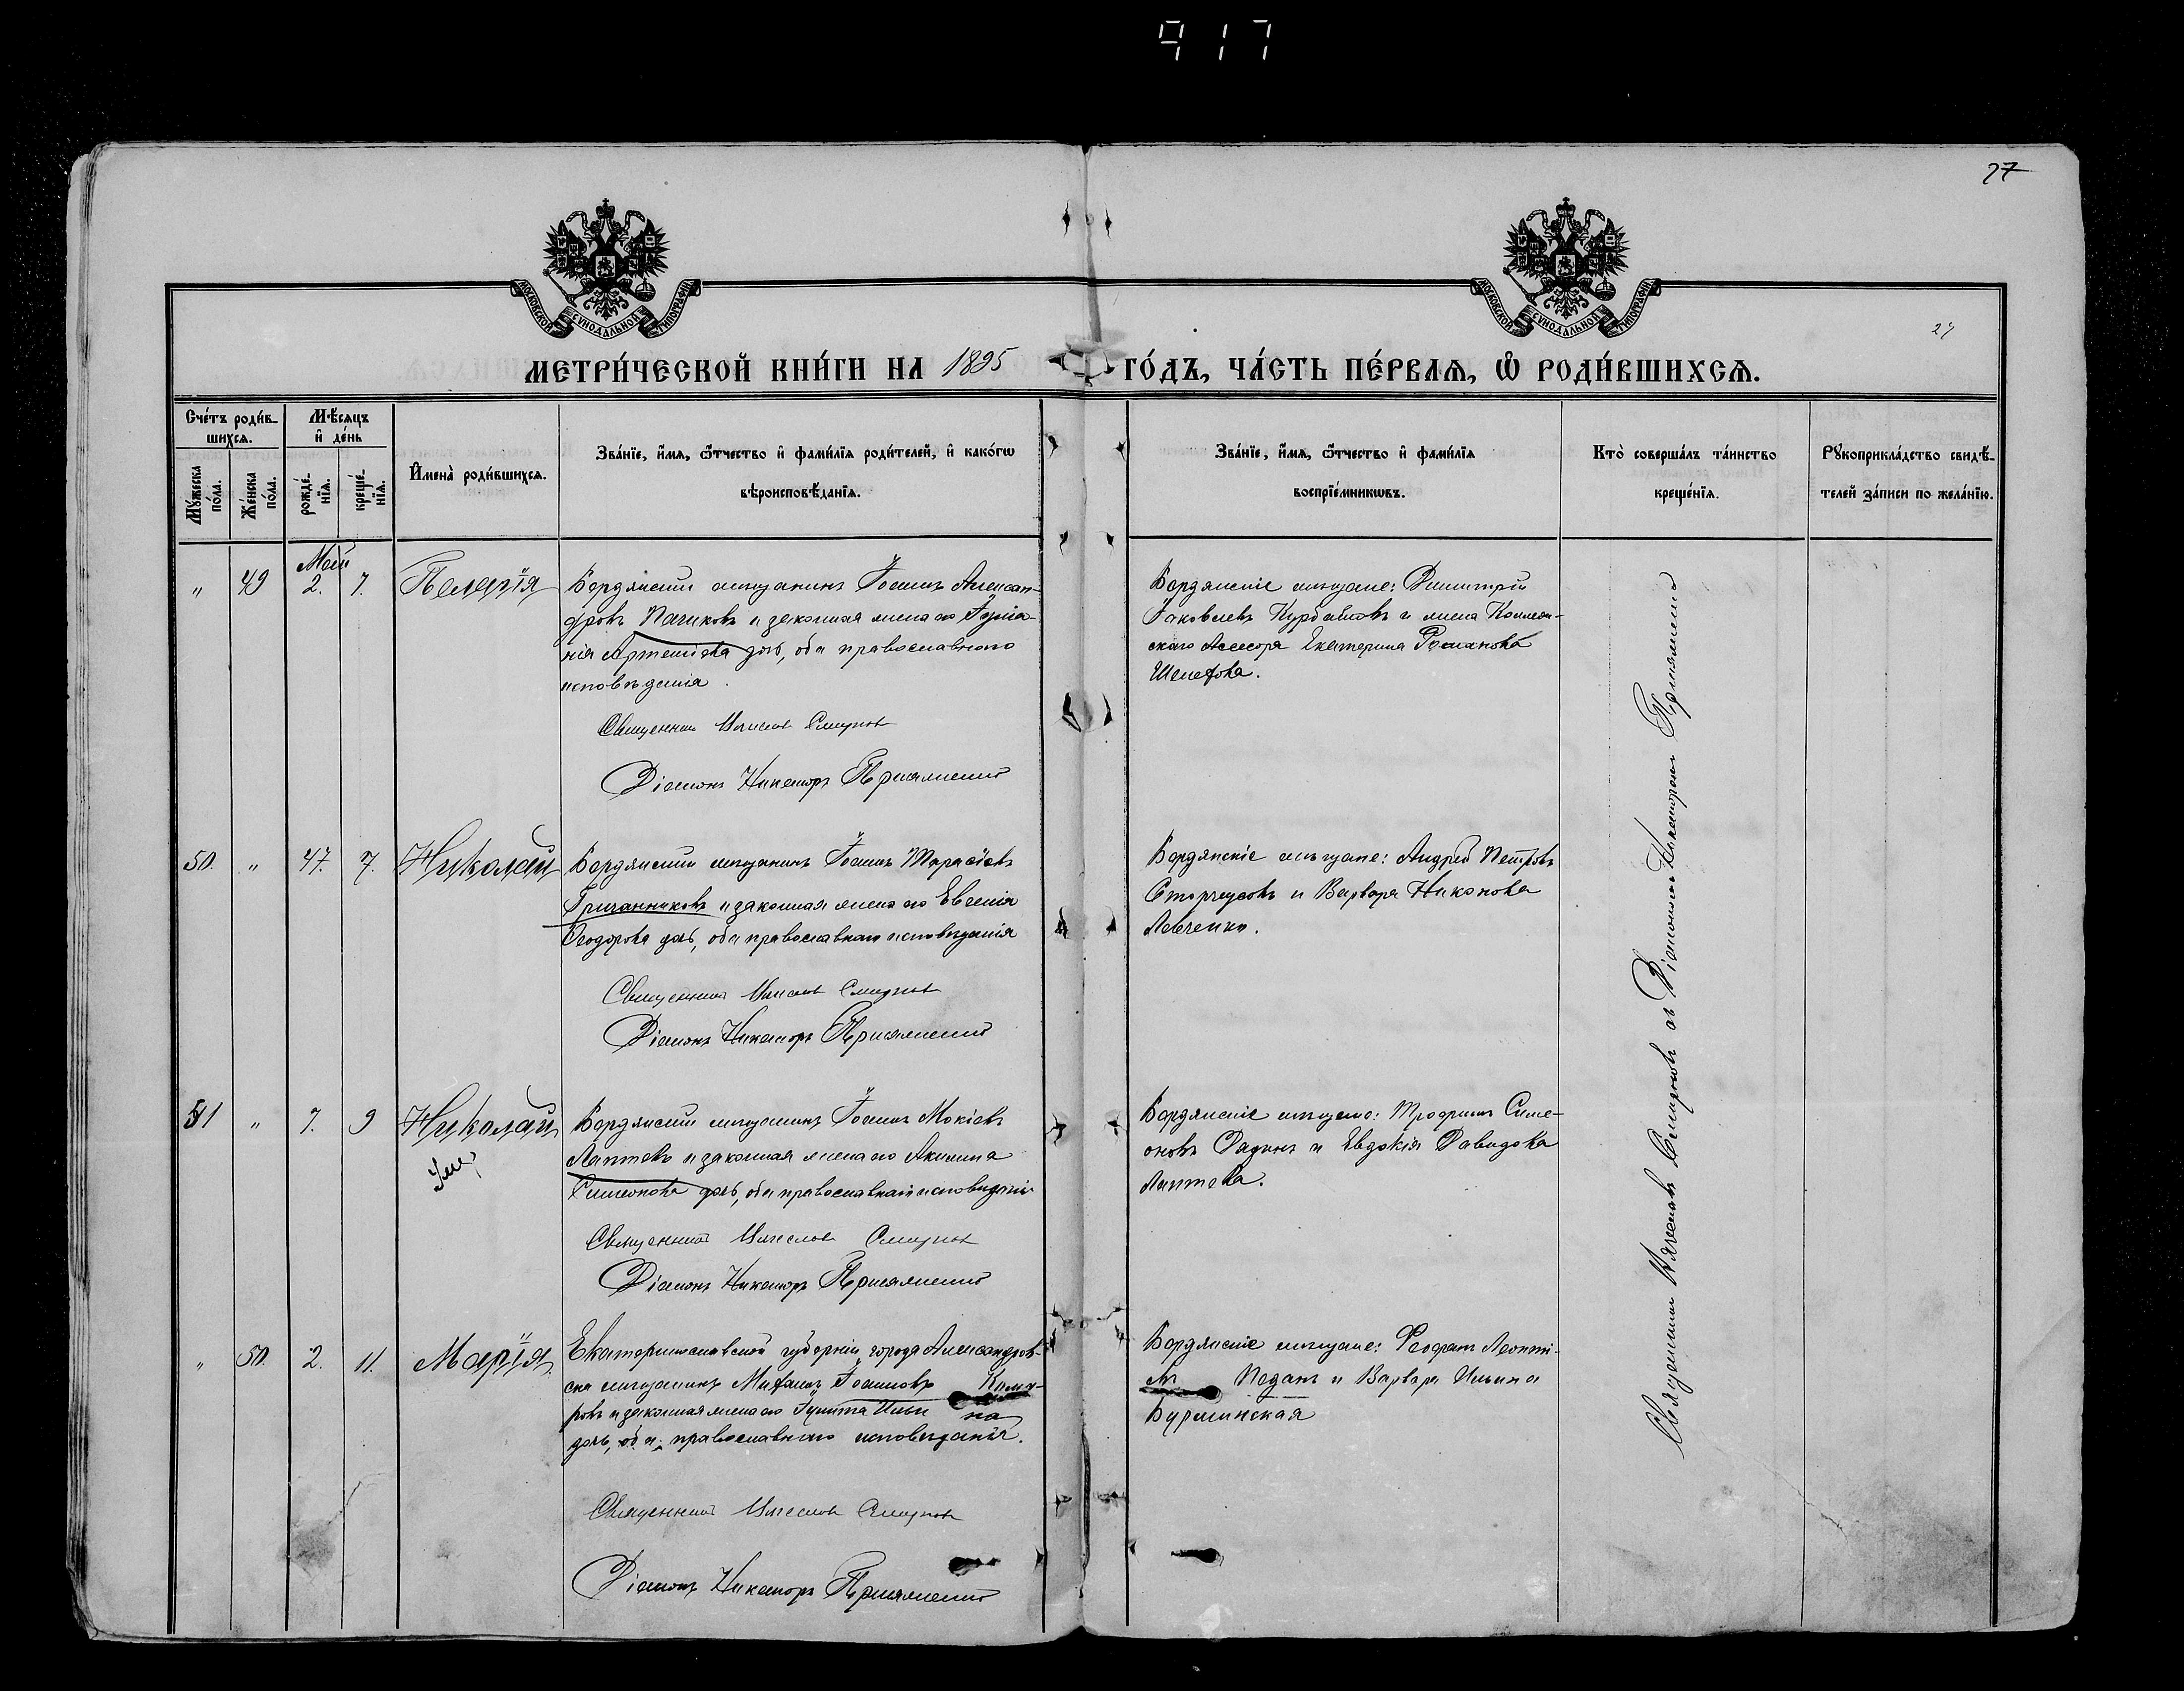 917
27
27
МОСКОВСКОЙ СУНОДАЛЬНОЙ ТИПОГРАФІИ
МОСКОВСКОЙ СУНОДАЛЬНОЙ ТИПОГРАФІИ
МЕТРИ́ЧЕСКОЙ КНИ́ГИ НА 1895 ГО́ДЪ, ЧА́СТЬ ПЕ́РВАѦ, Ѡ РОДИ́ВШИХСѦ.
Сче́тъ роди́вшихсѧ.
Мꙋ́жеска по́ла.
Же́нска по́ла.
Мѣ́сѧцъ и҆ де́нь
рожде́нїѧ.
креще́нїѧ.
И҆мена̀ роди́вшихсѧ.
Зва́нїе, и҆́мѧ, ѻ҆́тчество и҆ фами́лїѧ роди́телей, и҆ како́гѡ
вѣроисповѣ́данїѧ.
Зва́нїе, и҆́мѧ, ѻ҆́тчество и҆ фами́лїѧ
воспрїе́мникѡвъ.
Кто̀ соверша́лъ та́инство
креще́нїѧ.
Рꙋкоприкла́дство свидѣ́-
телей за́писи по жела́нїю.
Май
" 49 2. 7. Пелагія
Бердянскій мѣщанинъ Іоаннъ Алексан-
дровъ Пачиковъ и законная жена его Іуліа-
нія Артемьева дочь, оба православнаго
исповѣданія.
Священникъ Вячеслав Смирнов
Діаконъ Никаноръ Присяжненко
Бердянскіе мѣщане: Димитрій
Іаковлевъ Курбатовъ и жена Коллеж-
скаго Ассесора Екатерина Романова
50. " 47. 7. Николай
Бердянскій мѣщанинъ Іоаннъ Тарасіевъ
Гричанниковъ и законная жена его Евгенія
Ѳеодорова дочь, оба православнаго исповѣданія
Священникъ Вячеслав Смирнов
Діаконъ Никаноръ Присяжненко
Бердянскіе мѣщане: Андрей Петровъ
Сторчеусовъ и Варвара Никонова
Левченко.
51 " 7. 9 Николай
Умер
Бердянскій мѣщанинъ Іоаннъ Мокіевъ
Лаптевъ и законная жена его Акилина
Симеонова дочь, оба православнаго исповѣданія
Священникъ Вячеслав Смирнов
Діаконъ Никаноръ Присяжненко
Бердянскіе мѣщане: Трофимъ Симе-
оновъ Дядинъ и Евдокія Давидова
Лаптева.
" 50. 2. 11. Марія
Екатеринославской губерніи, города Александров-
ска мѣщанинъ Михаилъ Іоанновъ Кома-
ровъ и законная жена его Іулитта Ильина
дочь, оба православнаго исповѣданія.
Священникъ Вячеслав Смирнов
Діаконъ Никаноръ Присяжненко
Бердянскіе мѣщане: Леонті-
евъ Педанъ и Варвара Ильина
Священникъ Вячеславъ Смирновъ съ Діакономъ Никаноромъ Присяжненко